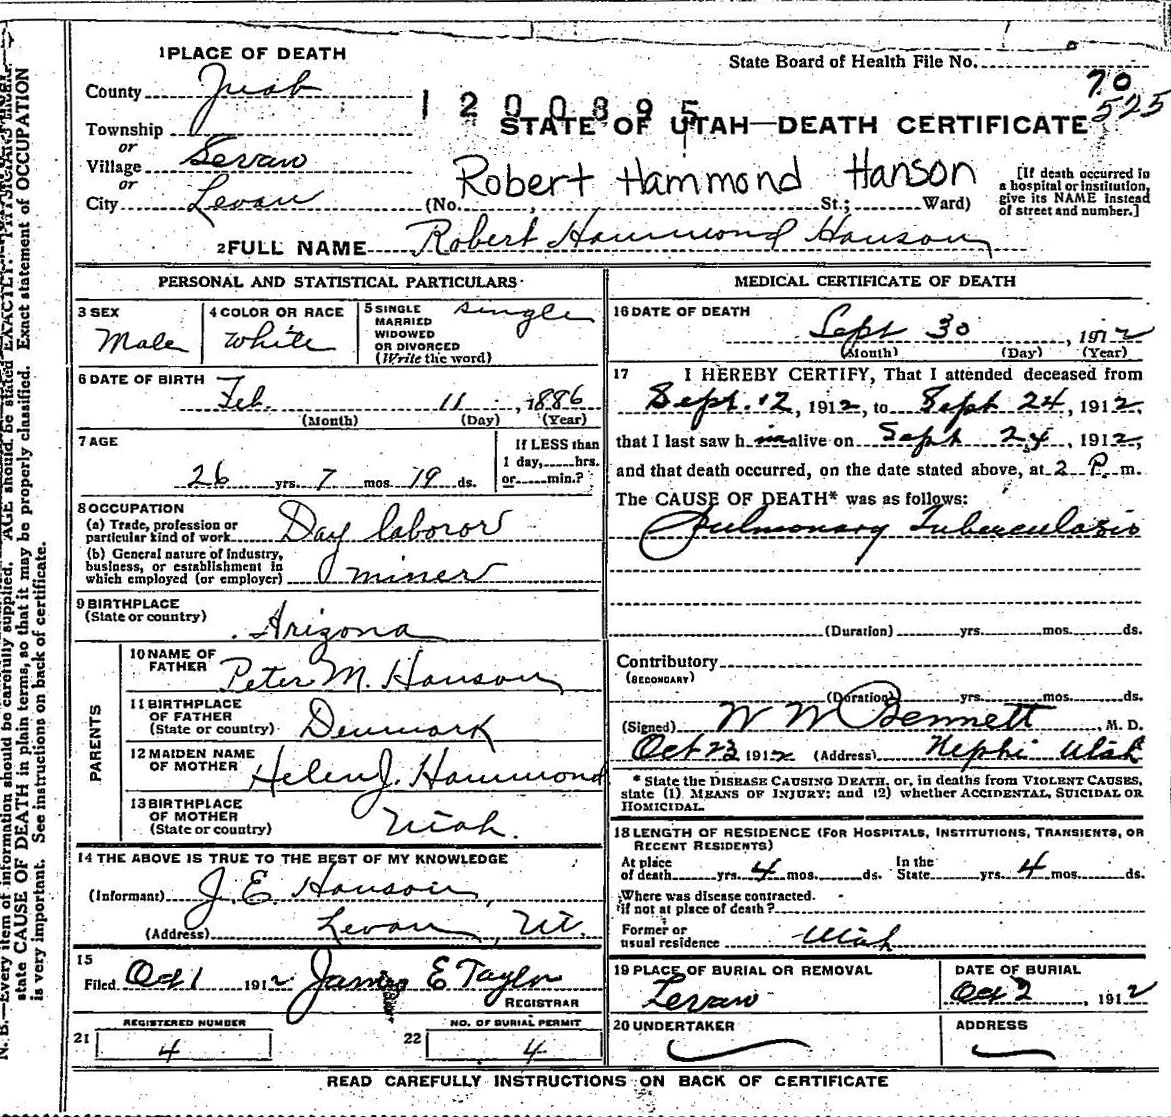 1 PLACE OF DEATH
State Board of Health File No.
70
525
County Juab
1200895
STATE OF UTAH—DEATH CERTIFICATE
Township
or
Village Levan
or
City Levan
Robert Hammond Hanson
(No. , St.; Ward)
[If death occurred in
a hospital or institution,
give its NAME instead
of street and number.]
2 FULL NAME Robert Hammond Hanson
PERSONAL AND STATISTICAL PARTICULARS
3 SEX
Male
4 COLOR OR RACE
White
5 SINGLE
MARRIED
WIDOWED
OR DIVORCED
(Write the word)
Single
6 DATE OF BIRTH
Feb. 11, 1886
(Month) (Day) (Year)
7 AGE
26 yrs. 7 mos. 19 ds.
If LESS than
1 day, hrs.
or min.?
8 OCCUPATION
(a) Trade, profession or
particular kind of work Day laboror
(b) General nature of industry,
business, or establishment in
which employed (or employer) miner
9 BIRTHPLACE
(State or country) Arizona
PARENTS
10 NAME OF
FATHER Peter M. Hanson
11 BIRTHPLACE
OF FATHER
(State or country) Denmark
12 MAIDEN NAME
OF MOTHER Helen J. Hammond
13 BIRTHPLACE
OF MOTHER
(State or country) Utah.
14 THE ABOVE IS TRUE TO THE BEST OF MY KNOWLEDGE
(Informant) J. E. Hanson,
(Address) Levan, Ut.
15
Filed Oct 1 1912 James E Taylor
REGISTRAR
21 REGISTERED NUMBER
4
22 NO. OF BURIAL PERMIT
4
MEDICAL CERTIFICATE OF DEATH
16 DATE OF DEATH
Sept 30, 1912
(Month) (Day) (Year)
17 I HEREBY CERTIFY, That I attended deceased from
Sept. 12, 1912, to Sept 24, 1912,
that I last saw h im alive on Sept 24, 1912,
and that death occurred, on the date stated above, at 2 P. m.
The CAUSE OF DEATH* was as follows:
Pulmonary Tuberculosis
(Duration) yrs. mos. ds.
Contributory
(SECONDARY)
(Duration) yrs. mos. ds.
(Signed) W W Bennett, M. D.
Oct 23 1912 (Address) Nephi Utah
* State the DISEASE CAUSING DEATH, or, in deaths from VIOLENT CAUSES,
state (1) MEANS OF INJURY; and (2) whether ACCIDENTAL, SUICIDAL OR
HOMICIDAL.
18 LENGTH OF RESIDENCE (FOR HOSPITALS, INSTITUTIONS, TRANSIENTS, OR
RECENT RESIDENTS)
At place
of death yrs. 4 mos. ds.
In the
State yrs. 4 mos. ds.
Where was disease contracted.
if not at place of death?
Former or
usual residence Utah
19 PLACE OF BURIAL OR REMOVAL
Levan
DATE OF BURIAL
Oct 2, 1912
20 UNDERTAKER
ADDRESS
READ CAREFULLY INSTRUCTIONS ON BACK OF CERTIFICATE
N. B.—Every item of information should be carefully supplied. AGE should be stated EXACTLY. PHYSICIANS
state CAUSE OF DEATH in plain terms, so that it may be properly classified. Exact statement of OCCUPATION
is very important. See instructions on back of certificate.